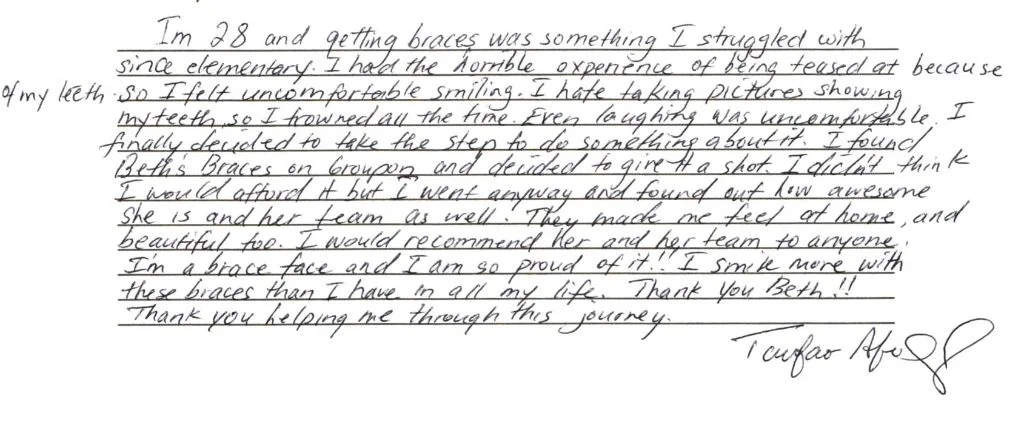 Im 28 and getting braces was something I struggled with
since elementary. I had the horrible experience of being teased at because
of my teeth. So I felt uncomfortable smiling. I hate taking pictures showing
my teeth, so I frowned all the time. Even laughing was uncomfortable. I
finally decided to take the step to do something about it. I found
Beth's Braces on Groupon and decided to give it a shot. I didn't think
I would afford it but I went anyway and found out how awesome
she is and her team as well. They made me feel at home, and
beautiful too. I would recommend her and her team to anyone.
I'm a brace face and I am so proud of it!! I smile more with
these braces than I have in all my life. Thank you Beth!!
Thank you helping me through this journey.